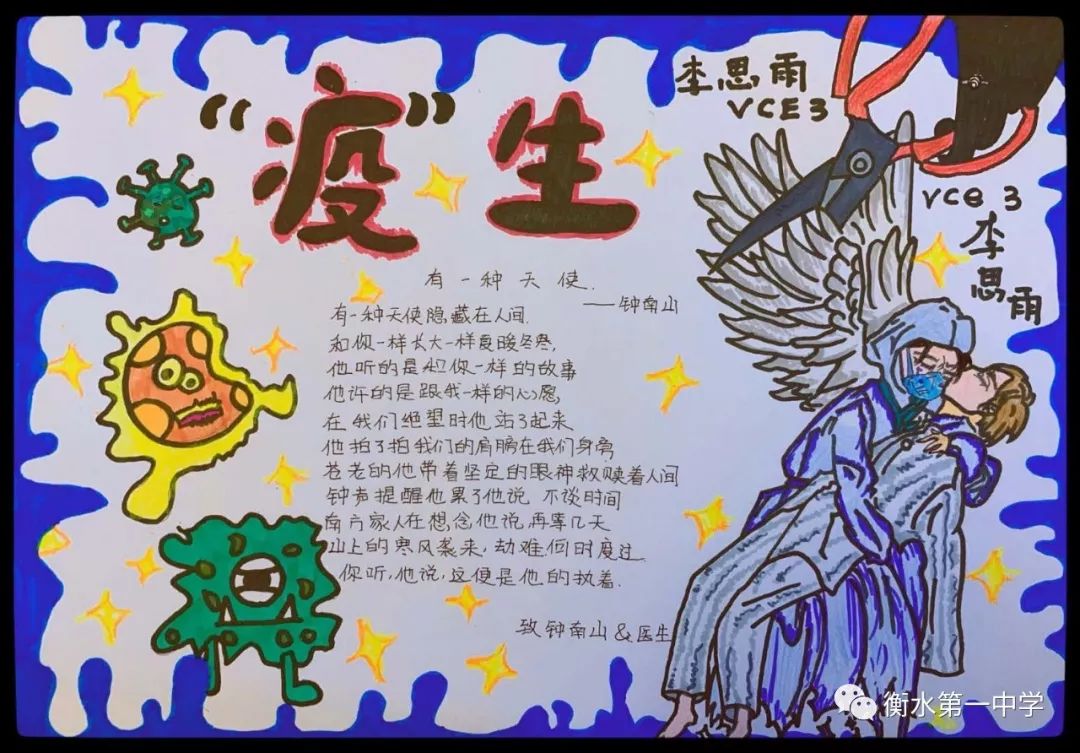 “疫”生
李思雨
VCE3
VCE 3
李思雨
有一种天使.
——钟南山
有一种天使隐藏在人间.
和你一样长大一样夏暖冬寒,
他听的是和你一样的故事
他许的是跟我一样的心愿,
在我们绝望时他站了起来
他拍了拍我们的肩膀在我们身旁
苍老的他带着坚定的眼神救赎着人间
钟声提醒他累了他说 不谈时间
南方家人在想念他说再等几天
山上的寒风袭来,劫难何时度过.
你听,他说,这便是他的执着.
致钟南山&医生
衡水第一中学